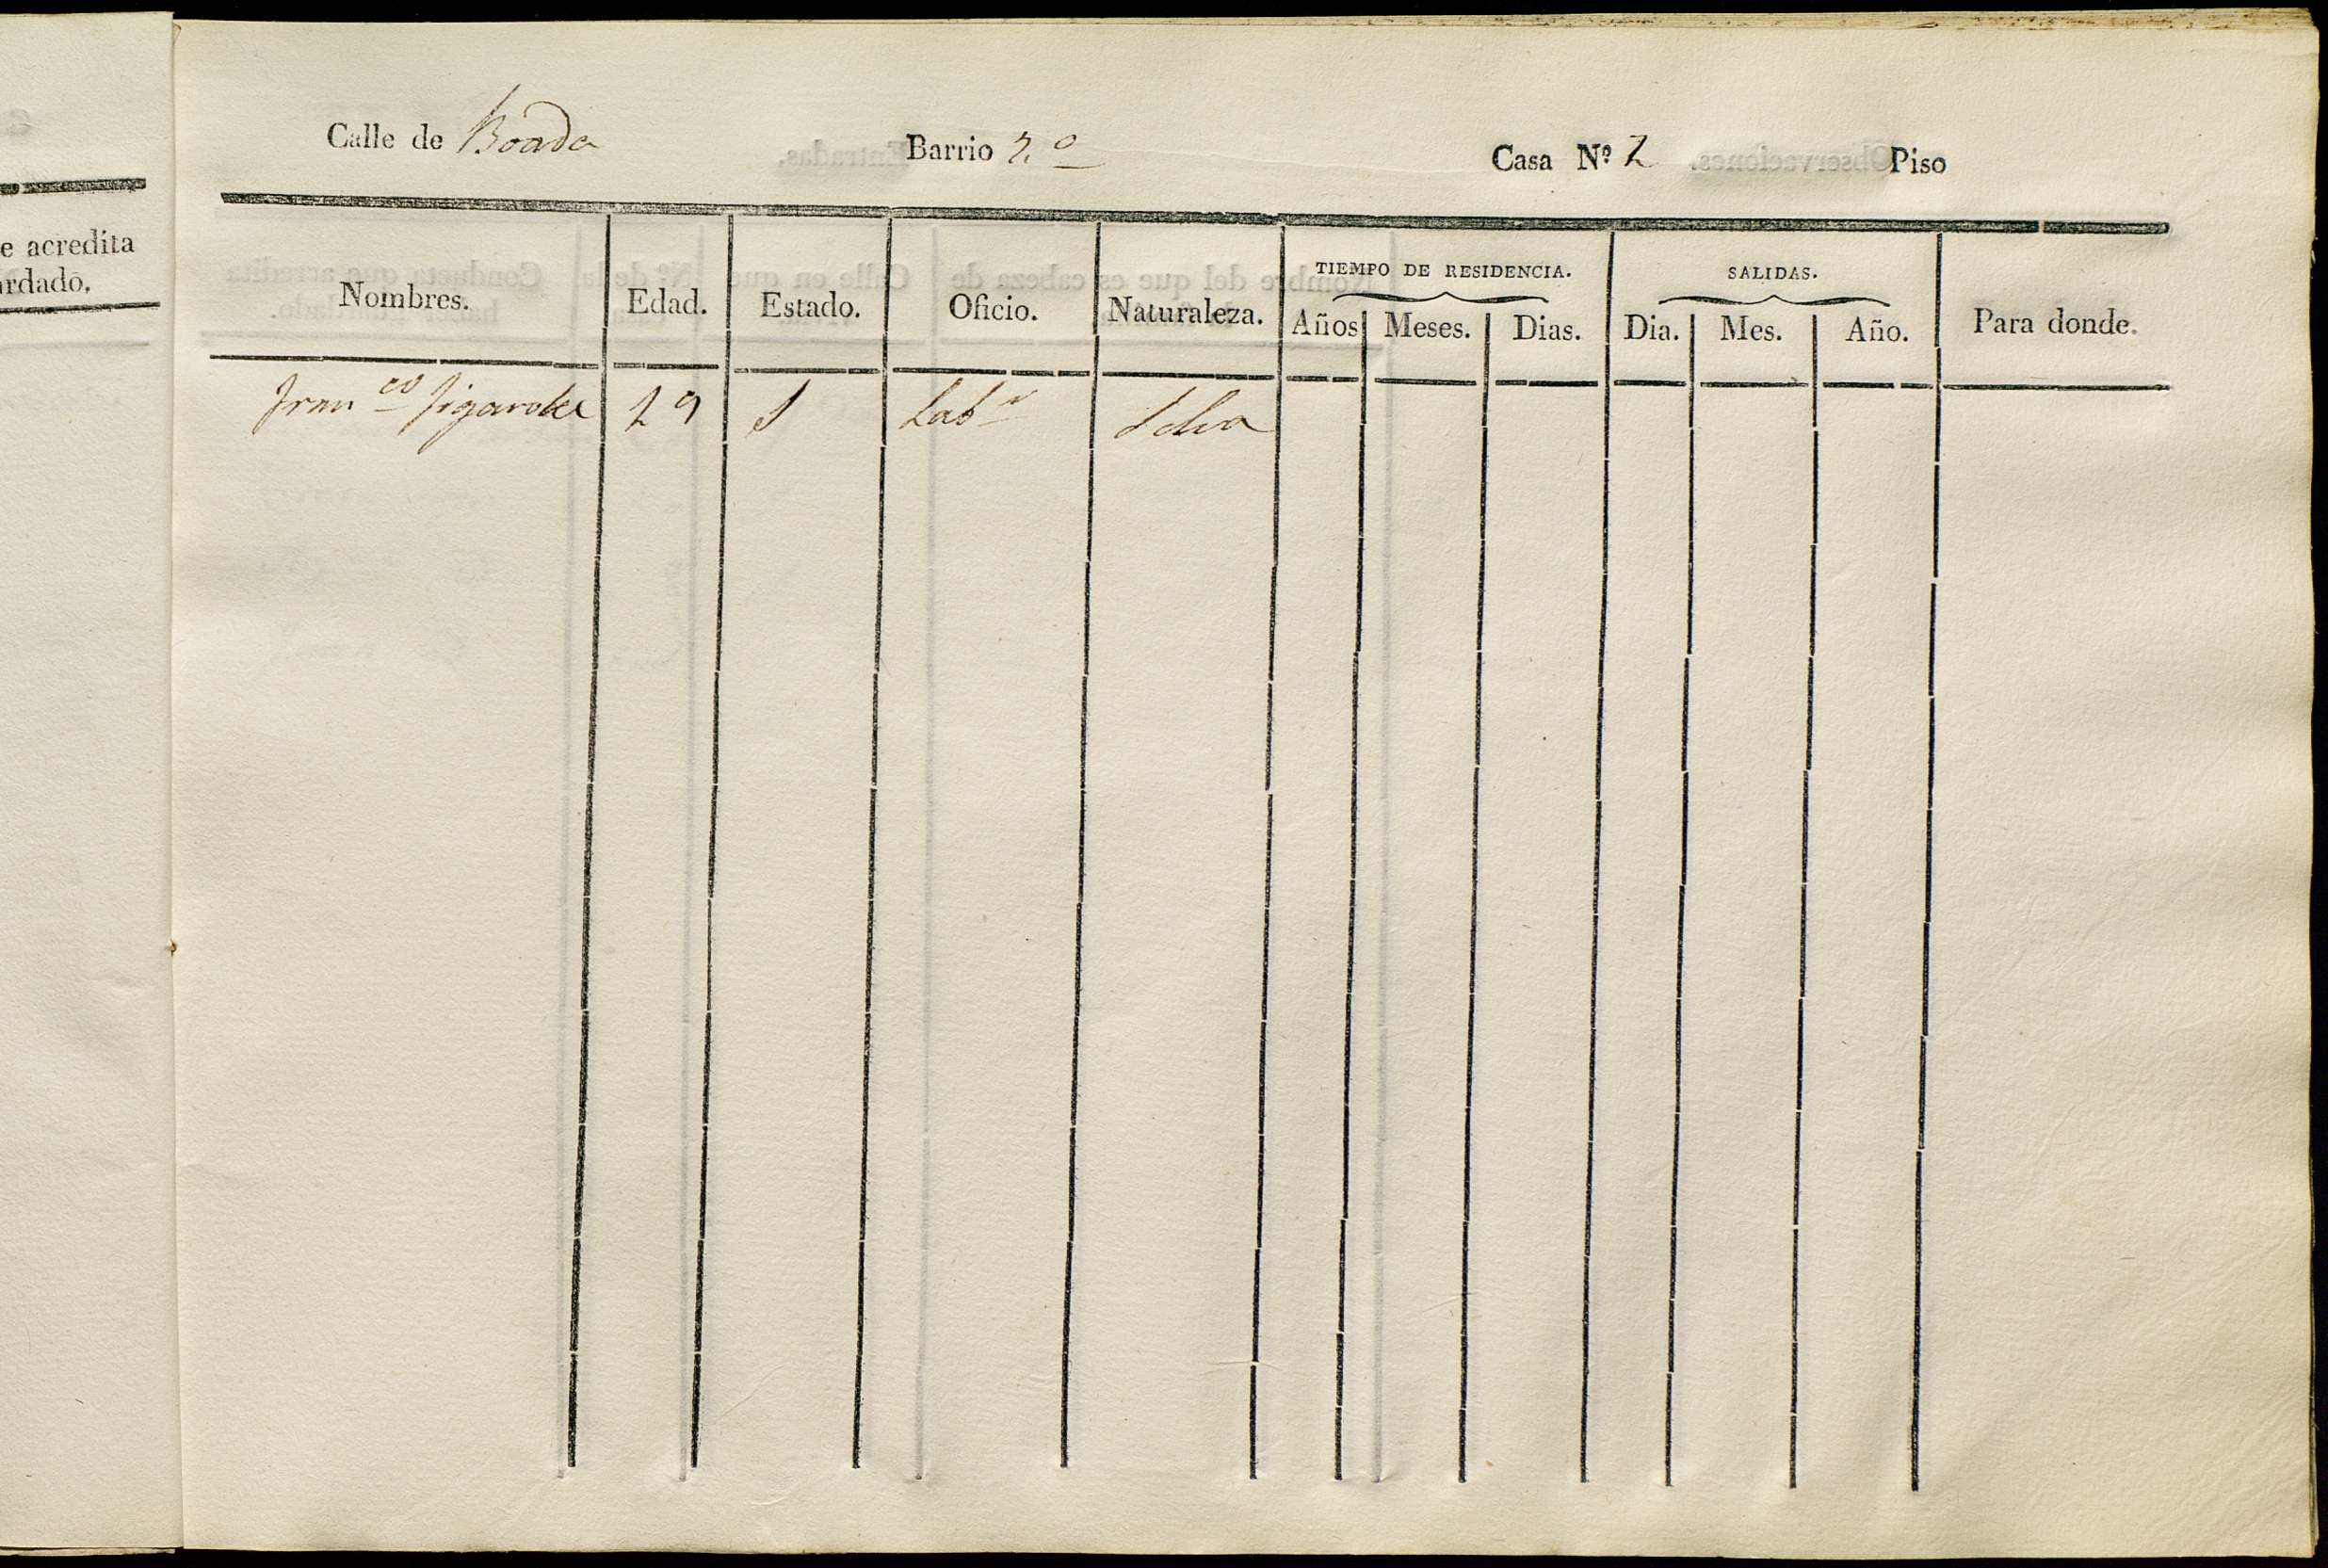 e acredita
ardado.
Calle de Boada Barrio 2.º Casa Nº 2 Piso
Nombres. Edad. Estado. Oficio. Naturaleza. TIEMPO DE RESIDENCIA. Años Meses. Dias. SALIDAS. Dia. Mes. Año. Para donde.
Fran.co Figarola 29 S Lab.r Selva